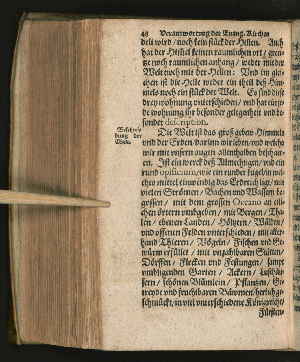 48 Verantwortung der Evang. Kirchen
deli wird / noch kein stück der Hellen. Auch
hat der Himmel keinen raumlichen ort / gren-
tze noch raumlichen anhang / weder mit der
Welt noch mit der Hellen: Und im glei-
chen ist die Helle weder ein theil deß Him-
mels noch ein stück der Welt. Es sind diese
drey wohnung unterschieden / und hat eine je-
de wohnung ihr besonder gelegenheit und be-
sonder description.
Beschrei-
bung der
Welt.
Die Welt ist das groß gebew Himmels
und der Erden / darinn wir leben / und welche
wir mit unsern augen allenthalben beschaw-
en. Ist ein werck deß Allmechtigen / und ein
rund opificium, wie ein runder kugel / in wel-
ches mittel einwendig das Erdreich ligt / mit
vielen Strömen / Bächen und Wassern be-
gossen / mit dem grossen Oceano an etli-
chen örtern umbgeben / mit Bergen / Tha-
len / ebenen Landen / Höltzern / Wälden /
und offenen Felden unterschieden / mit aller-
hand Thieren / Vögeln / Fischen und Ge-
würm erfüllet / mit unzahlbaren Städten /
Dörffen / Flecken und Festungen / sampt
umbligenden Garten / Äckern / Lusthäu-
sern / schönen Blümlein / Pflantzen / Ge-
treyde und fruchtbaren Bäwmen / herrlich ge-
schmückt / in viel unterschiedene Königreiche /
Fürsten-